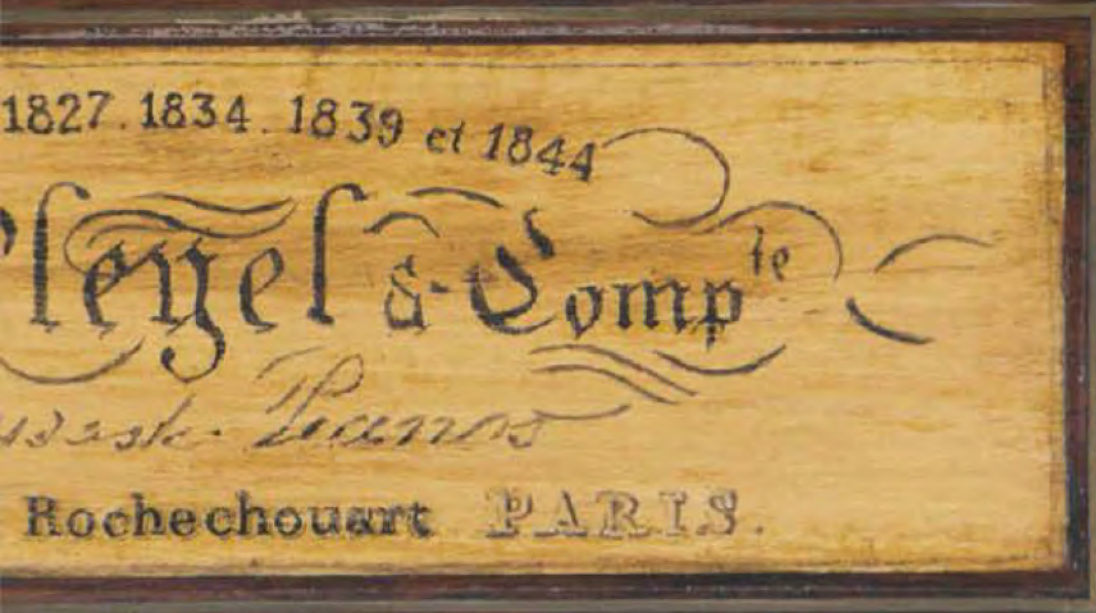 1827. 1834. 1839 et 1844
Pleyel & Compie
Pianos
Rochechouart PARIS.